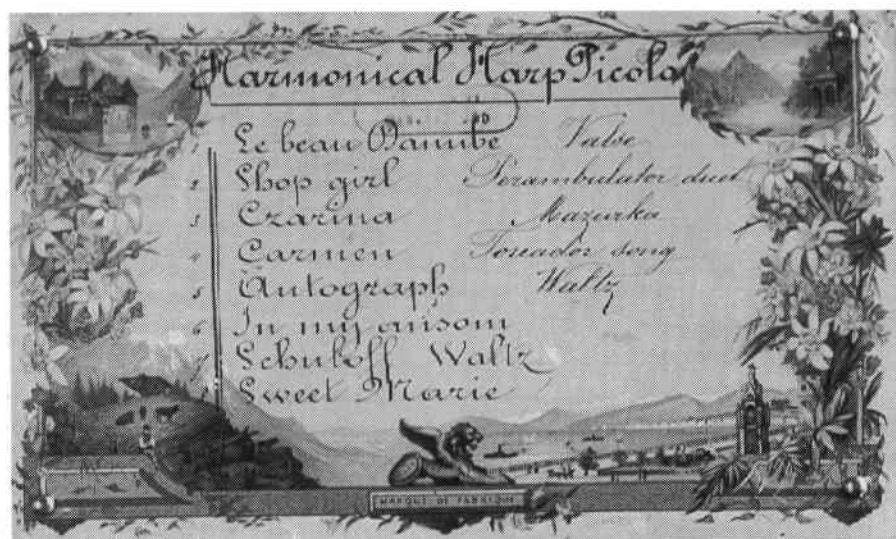 Harmonical Harp Picolo
1 Le beau Danube Valse
2 Shop girl Perambulator duet
3 Czarina Mazurka
4 Carmen Toreador song
5 Autograph Waltz
6 In my ansom
7 Schuboff Waltz
Sweet Marie
MARQUE DE FABRIQUE